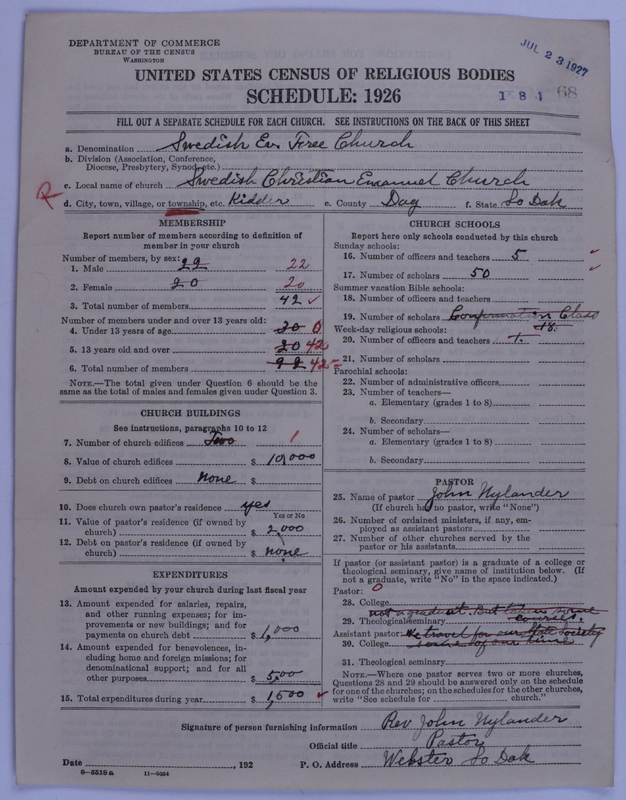 DEPARTMENT OF COMMERCE
BUREAU OF THE CENSUS
WASHINGTON
JUL 23 1927
UNITED STATES CENSUS OF RELIGIOUS BODIES
SCHEDULE: 1926
1 8 1 68
FILL OUT A SEPARATE SCHEDULE FOR EACH CHURCH. SEE INSTRUCTIONS ON THE BACK OF THIS SHEET
a. Denomination Swedish Ev. Free Church
b. Division (Association, Conference, Diocese, Presbytery, Synod, etc.)
c. Local name of church Swedish Christian Emanuel Church
R
d. City, town, village, or township, etc. Kidder e. County Day f. State So Dak
MEMBERSHIP
Report number of members according to definition of member in your church
Number of members, by sex:
1. Male 22 22
2. Female 20 20
3. Total number of members 42
Number of members under and over 13 years old:
4. Under 13 years of age 20 0
5. 13 years old and over 20 42
6. Total number of members 92 42
NOTE.—The total given under Question 6 should be the same as the total of males and females given under Question 3.
CHURCH BUILDINGS
See instructions, paragraphs 10 to 12
7. Number of church edifices Two 1
8. Value of church edifices $ 10,000
9. Debt on church edifices None $
10. Does church own pastor's residence yes
Yes or No
11. Value of pastor's residence (if owned by church) $ 2,000
12. Debt on pastor's residence (if owned by church) $ none
EXPENDITURES
Amount expended by your church during last fiscal year
13. Amount expended for salaries, repairs, and other running expenses; for improvements or new buildings; and for payments on church debt $ 1,000
14. Amount expended for benevolences, including home and foreign missions; for denominational support; and for all other purposes $ 500
15. Total expenditures during year $ 1,500
CHURCH SCHOOLS
Report here only schools conducted by this church
Sunday schools:
16. Number of officers and teachers 5
17. Number of scholars 50
Summer vacation Bible schools:
18. Number of officers and teachers
19. Number of scholars Confirmation Class
18.
Week-day religious schools:
20. Number of officers and teachers 1.
21. Number of scholars
Parochial schools:
22. Number of administrative officers
23. Number of teachers—
a. Elementary (grades 1 to 8)
b. Secondary
24. Number of scholars—
a. Elementary (grades 1 to 8)
b. Secondary
PASTOR
25. Name of pastor John Nylander
(If church has no pastor, write "None")
26. Number of ordained ministers, if any, employed as assistant pastors
27. Number of other churches served by the pastor or his assistants
If pastor (or assistant pastor) is a graduate of a college or theological seminary, give name of institution below. (If not a graduate, write "No" in the space indicated.)
Pastor: 0
28. College
not a graduate. But taken some
29. Theological seminary courses.
Assistant pastor: He travel for our State Society
30. College some of our time
31. Theological seminary
NOTE.—Where one pastor serves two or more churches, Questions 28 and 29 should be answered only on the schedule for one of the churches; on the schedules for the other churches, write "See schedule for church."
Signature of person furnishing information Rev John Nylander
Official title Pastor
Date , 192 P. O. Address Webster So Dak
8—5518a 11—8034